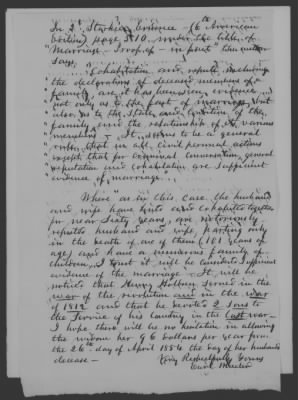 In 2d Starkies Evidence (6th American
Edition) page 710. under the title of
Marriage - Proof of - in fact" the author
says,
"Cohabitation and repute, including
the declarations of deceased members of a
family are it has been seen, evidence
not only as to the fact of marriage, but
also, as to the state and condition of the
family and the relationship of its various
members - It seems to be a general
rule, that in all civil personal actions
except that for criminal conversation, general
reputation and cohabitation are sufficient
evidence of marriage."
Where as in this case, the husband
and wife have lived and cohabited together
for near Sixty years, are notoriously
reputed husband and wife, parting only
in the death of one of them (101 years of
age) and have a numerous family of
children, I trust it will be considered sufficient
evidence of the marriage. It will be
noticed that Henry served in the
war of the revolution and in the war
of 1812 and that he devoted 2 sons to
the Service of his Country in the last war -
I hope there will be no hesitation in allowing
the widow her 96 Dollars per year from
the 26th day of April 1854 the day of her husbands
decease -
Very Respectfully Yours